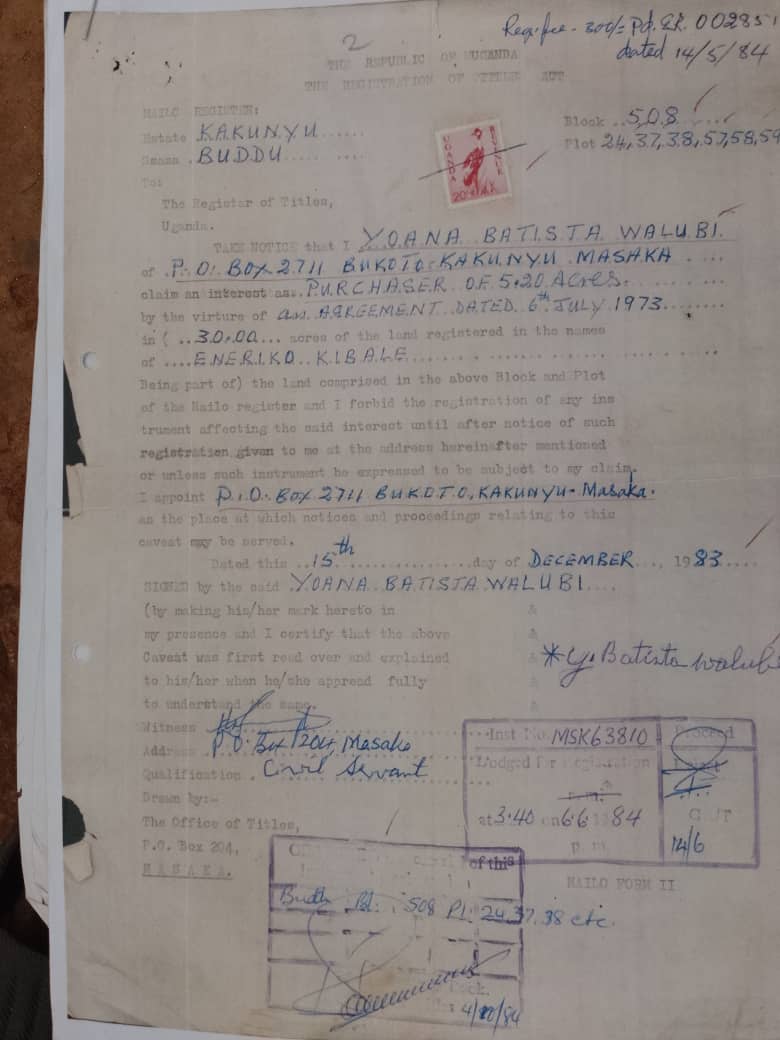 Reg. fee - 300/= Pd. ER. 002851
dated 14/5/84
2
THE REPUBLIC OF UGANDA
THE REGISTRATION OF TITLES ACT
MAILO REGISTER:
Estate KAKUNYU......
Block ..508
Saza .BUDDU..... ....
Plot 24,37,38,57,58,59
UGANDA REVENUE
20
To:
The Registar of Titles,
Uganda.
TAKE NOTICE that I YOANA BATISTA WALUBI.
of .P.O. BOX 2711 BUKOTO-KAKUNYU MASAKA ....
claim an interest as..PURCHASER OF 5.20 Acres.
by the virture of an AGREEMENT DATED 6th JULY 1973........
in ( ..30.00... acres of the land registered in the names
of ....ENERIKO KIBALE
Being part of) the land comprised in the above Block and Plot
of the Mailo register and I forbid the registration of any ins
trument affecting the said interest until after notice of such
registration given to me at the address hereinafter mentioned
or unless such instrument be expressed to be subject to my claim.
I appoint P.O. Box 2711 BUKOTO, KAKUNYU - Masaka.
as the place at which notices and proceedings relating to this
caveat may be served.
Dated this ..15th..................day of DECEMBER..., 1983....
SIGNED by the said .YOANA BATISTA WALUBI....
(by making his/her mark hereto in &
my presence and I certify that the above &
Caveat was first read over and explained &
*Y. Batista Walubi
to his/her when he/she appread fully &
to understand the same. &
Witness
Address P.O. Box 204, Masaka
Qualification . Civil Servant
Inst No. MSK63810
Proceed
Lodged for Registration
at 3.40 on 6.6 1984
p.m.
14/6
Drawn by:-
The Office of Titles,
P.O. Box 204,
MASAKA.
of this
MAILO FORM II
Bk: 508 Pl: 24,37,38 etc.
84